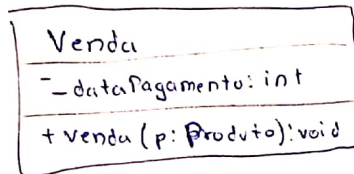 Venda
- dataPagamento: int
+ venda (p: Produto): void